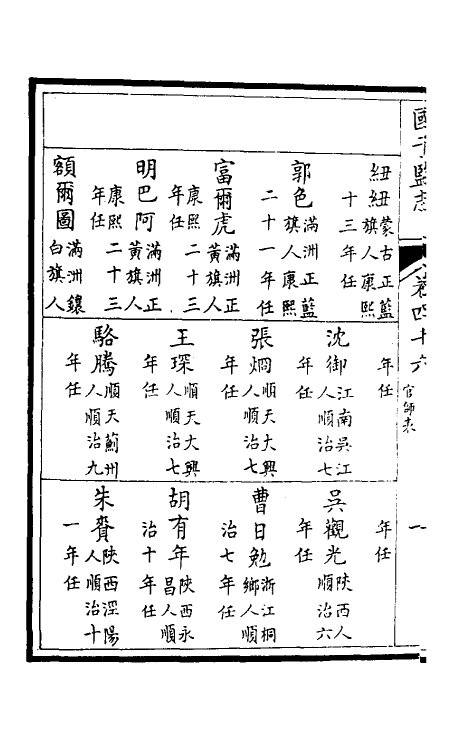 國子監志
卷四十六
官師表
一
紐紐蒙古正藍旗人康熙
十三年任
郭色滿洲正藍旗人康熙
二十一年任
富爾虎滿洲正黃旗人
康熙二十三年任
明巴阿滿洲正黃旗人
康熙二十三年任
額爾圖滿洲鑲白旗人
年任
沈御江南吳江人順治七
年任
張烱順天大興人順治七
年任
王琛順天大興人順治七
年任
駱騰順天薊州人順治九
年任
年任
吳觀光陝西人順治六
年任
曹日勉浙江桐鄉人順
治七年任
胡有年陝西永昌人順
治十年任
朱賡陝西涇陽人順治十
一年任